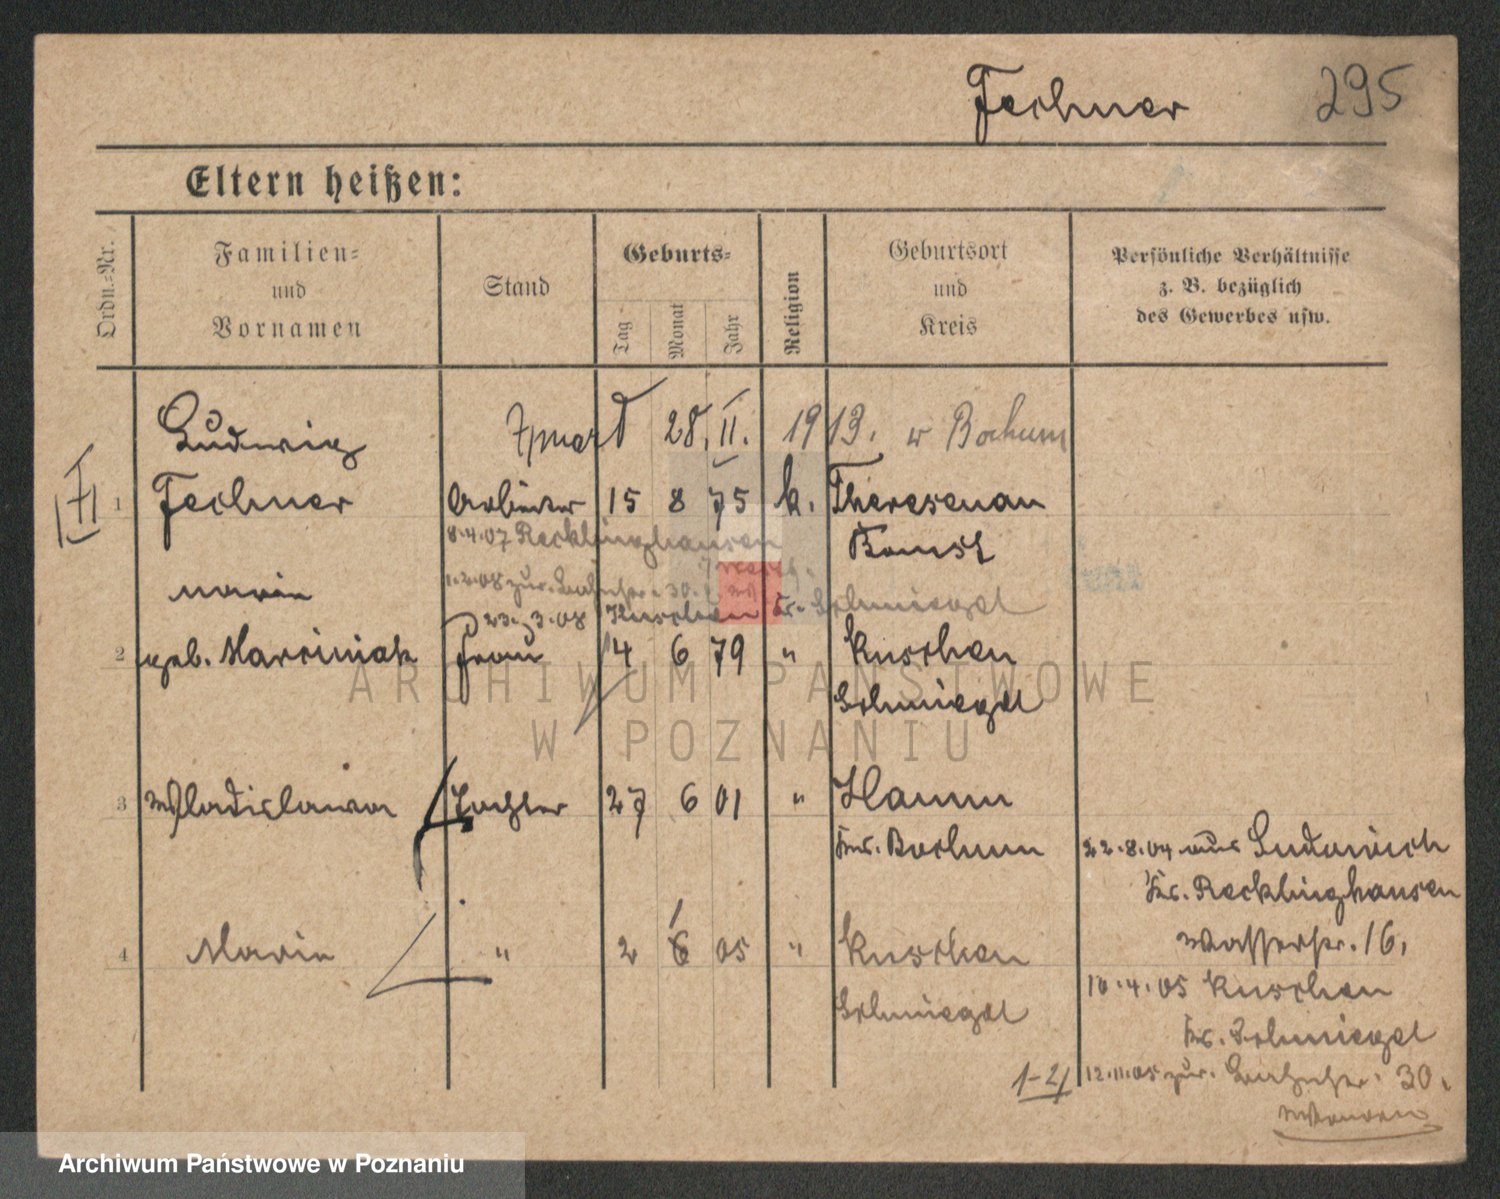 Fechner 295
Eltern heißen:
Ordn.-Nr.
Familien-
und
Vornamen
Stand
Geburts-
Tag
Monat
Jahr
Religion
Geburtsort
und
Kreis
Persönliche Verhältnisse
z. B. bezüglich
des Gewerbes usw.
Ludwig
Zmarł 28. II. 1913. w Bochum
1 Fechner Arbeiter 15 8 75 k. Theresenau
8.4.07 Recklinghausen Bomst
1.2.08 zur. 30.
Maria
23.3.08 Kuschen Kr. Schmiegel
2 geb. Marciniak Frau 14 6 79 " Kuschen
Schmiegel
3 Wladislawa Tochter 27 6 01 " Hamm
Krs. Bochum 22.8.04 aus Suderwich
Kr. Recklinghausen
4 Maria " 2 6 05 " Kuschen Wasserstr. 16.
10.4.05 Kuschen
Schmiegel
Kr. Schmiegel
1-21 12.11.05 zur. 30.
ARCHIWUM PAŃSTWOWE
W POZNANIU
Archiwum Państwowe w Poznaniu